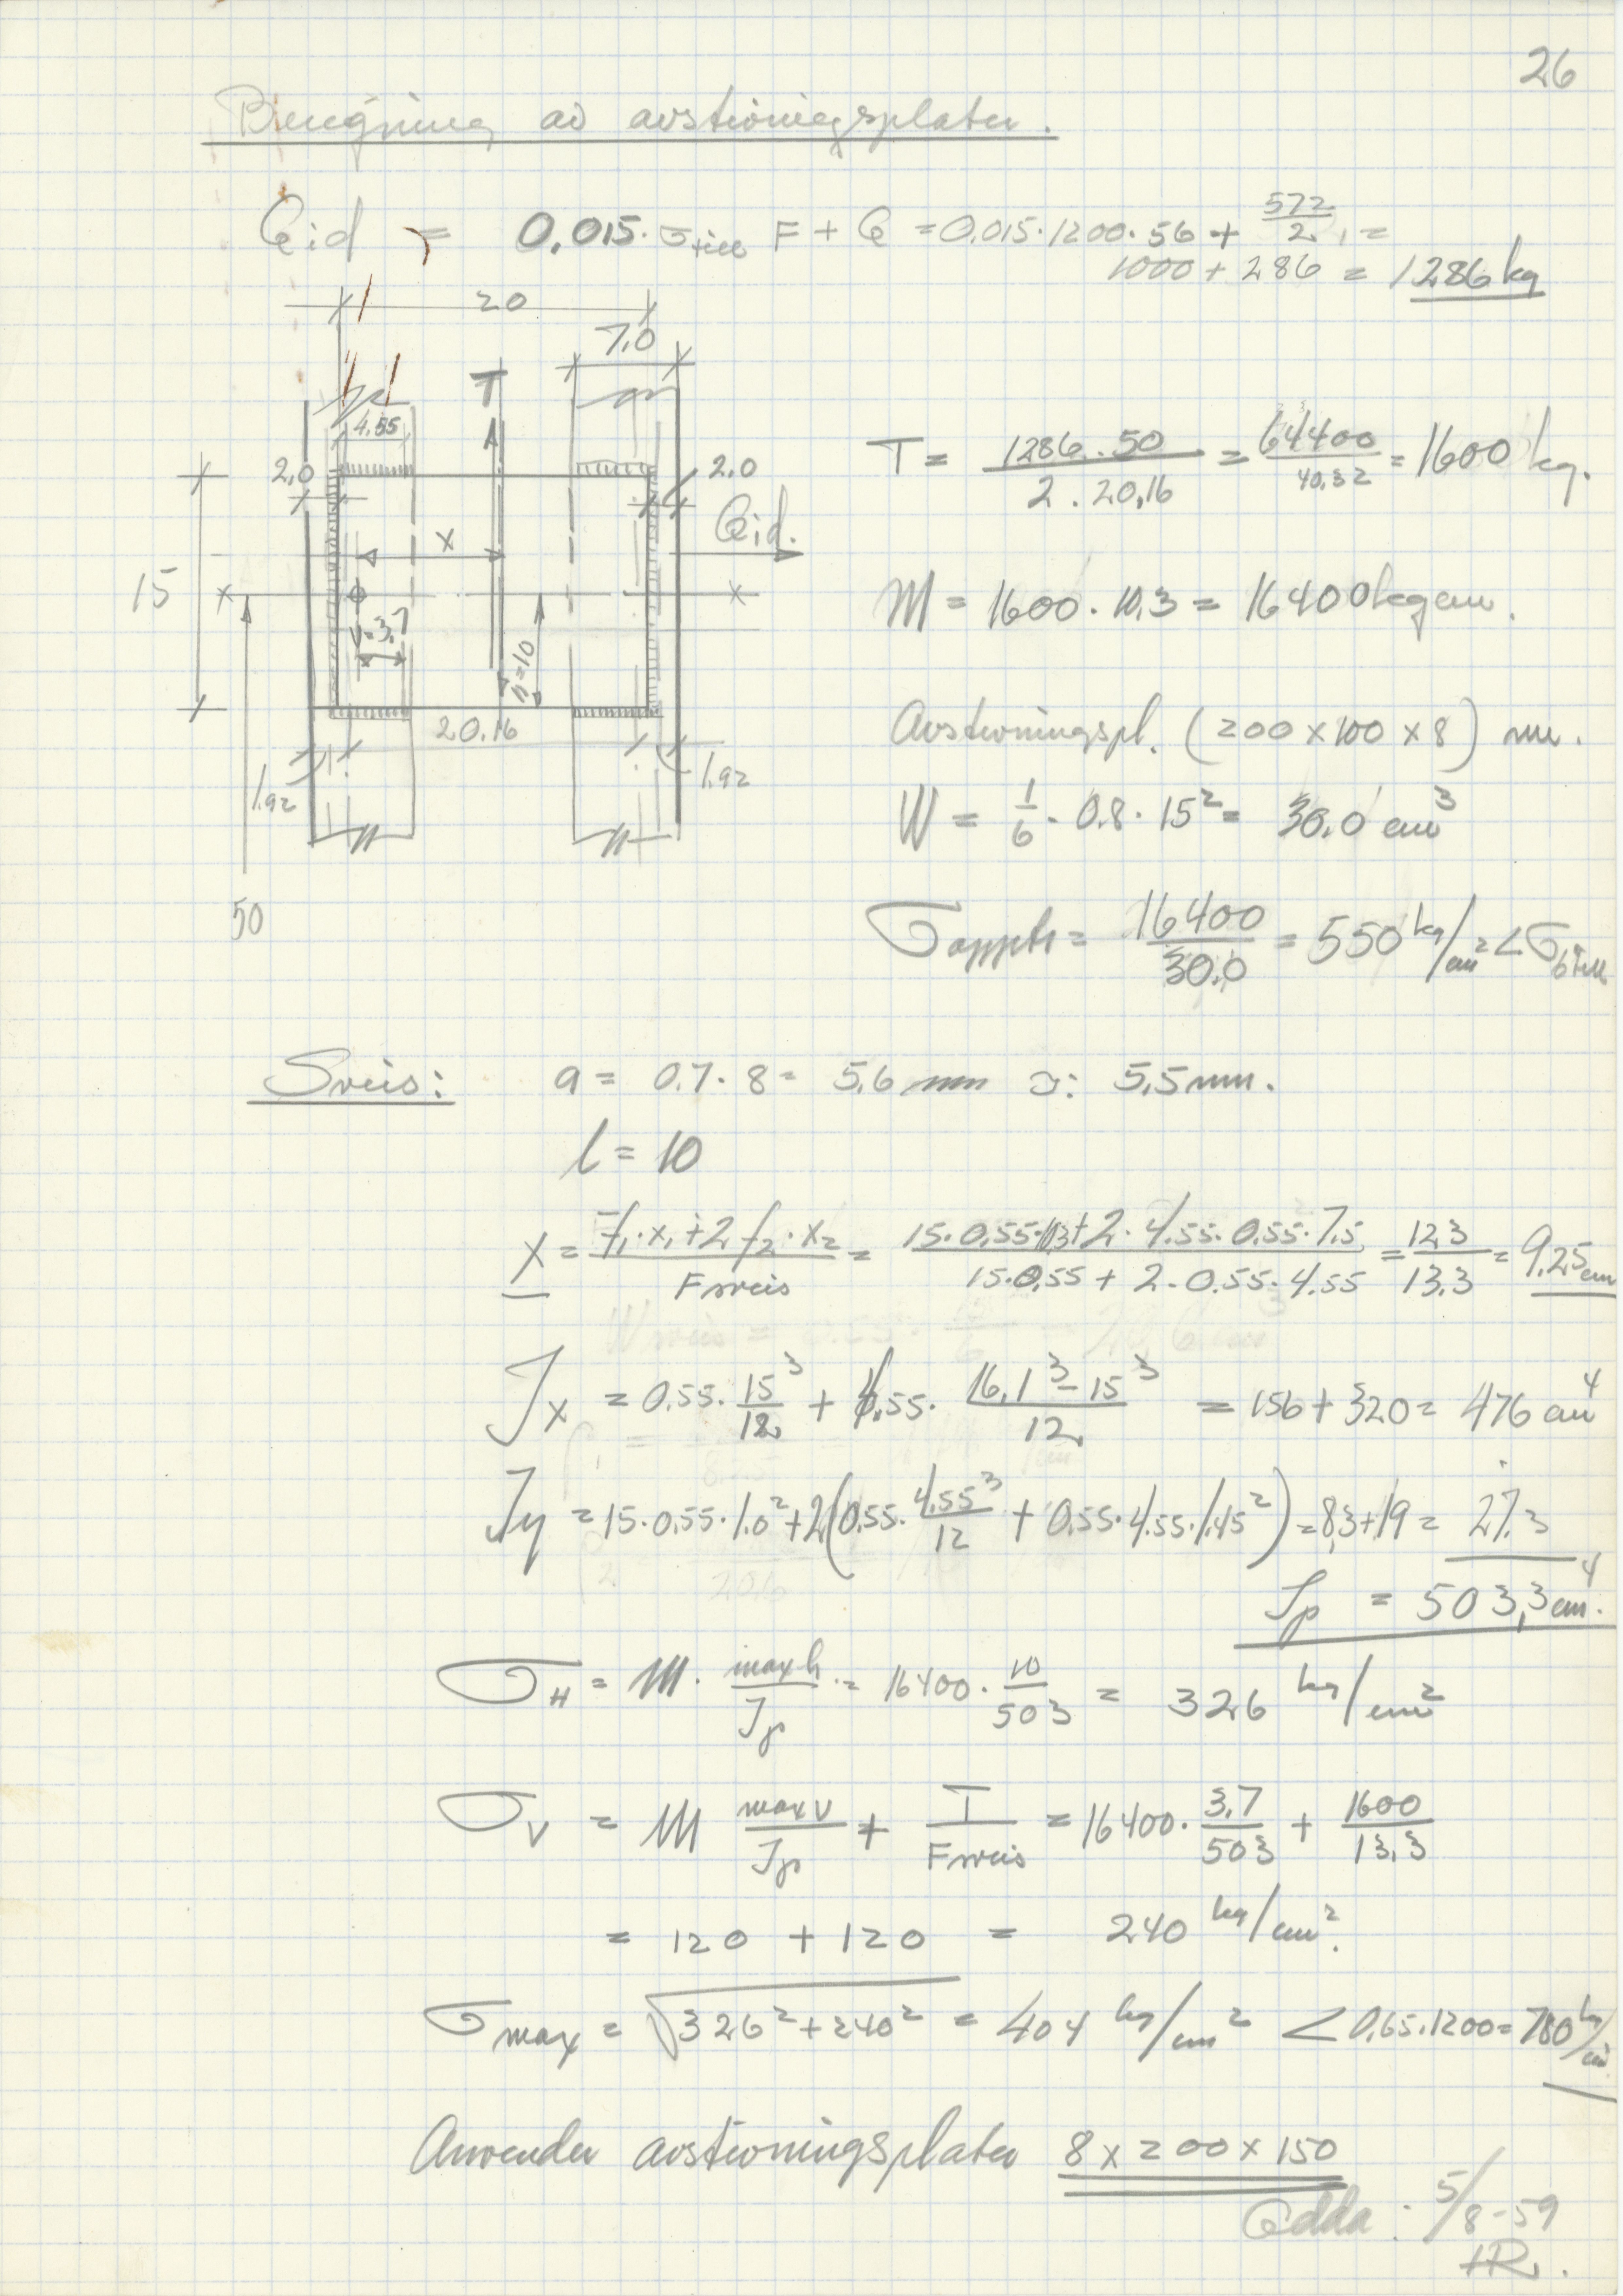 26
Beregning av avstivningsplater.
Qid = 0,015 · σtill F + Q = 0,015 · 1200 · 56 + 572/2 =
1000 + 286 = 1286 kg
20
7,0
T
4.55
2.0
2.0
Qid.
x
15
x
x
v=3,7
h=10
20.16
1.92
1.92
50
T = 1286 · 50 / 2 · 20,16 = 64400 / 40.32 = 1600 kg.
M = 1600 · 10.3 = 16400 kgcm.
Avstivningspl. (200 x 100 x 8) mm.
W = 1/6 · 0.8 · 15² = 30.0 cm³
σopptr = 16400 / 30.0 = 550 kg/cm² < σbtill
Sveis: a = 0.7 · 8 = 5,6 mm ɔ: 5,5 mm.
l = 10
x = f₁ · x₁ + 2 f₂ · x₂ / Fsveis = 15 · 0,55 · 10,3 + 2 · 4.55 · 0.55 · 7.5 / 15 · 0.55 + 2 · 0.55 · 4.55 = 123 / 13.3 = 9,25 cm
Jx = 0.55 · 15³/12 + 4,55 · 16,1³ – 15³ / 12 = 156 + 320 = 476 cm⁴
Jy = 15 · 0,55 · 1.0² + 2 (0.55 · 4.55³/12 + 0.55 · 4.55 · 1.45²) = 8,3 + 19 = 27.3
Jp = 503,3 cm⁴.
σH = M · max h / Jp = 16400 · 10/503 = 326 kg/cm²
σV = M max v / Jp + T / Fsveis = 16400 · 3,7/503 + 1600/13.3
= 120 + 120 = 240 kg/cm².
σmax = √326² + 240² = 404 kg/cm² < 0,65 · 1200 = 780 kg/cm²
Anvender avstivningsplater 8 x 200 x 150
Odda : 5/8-59
HR.